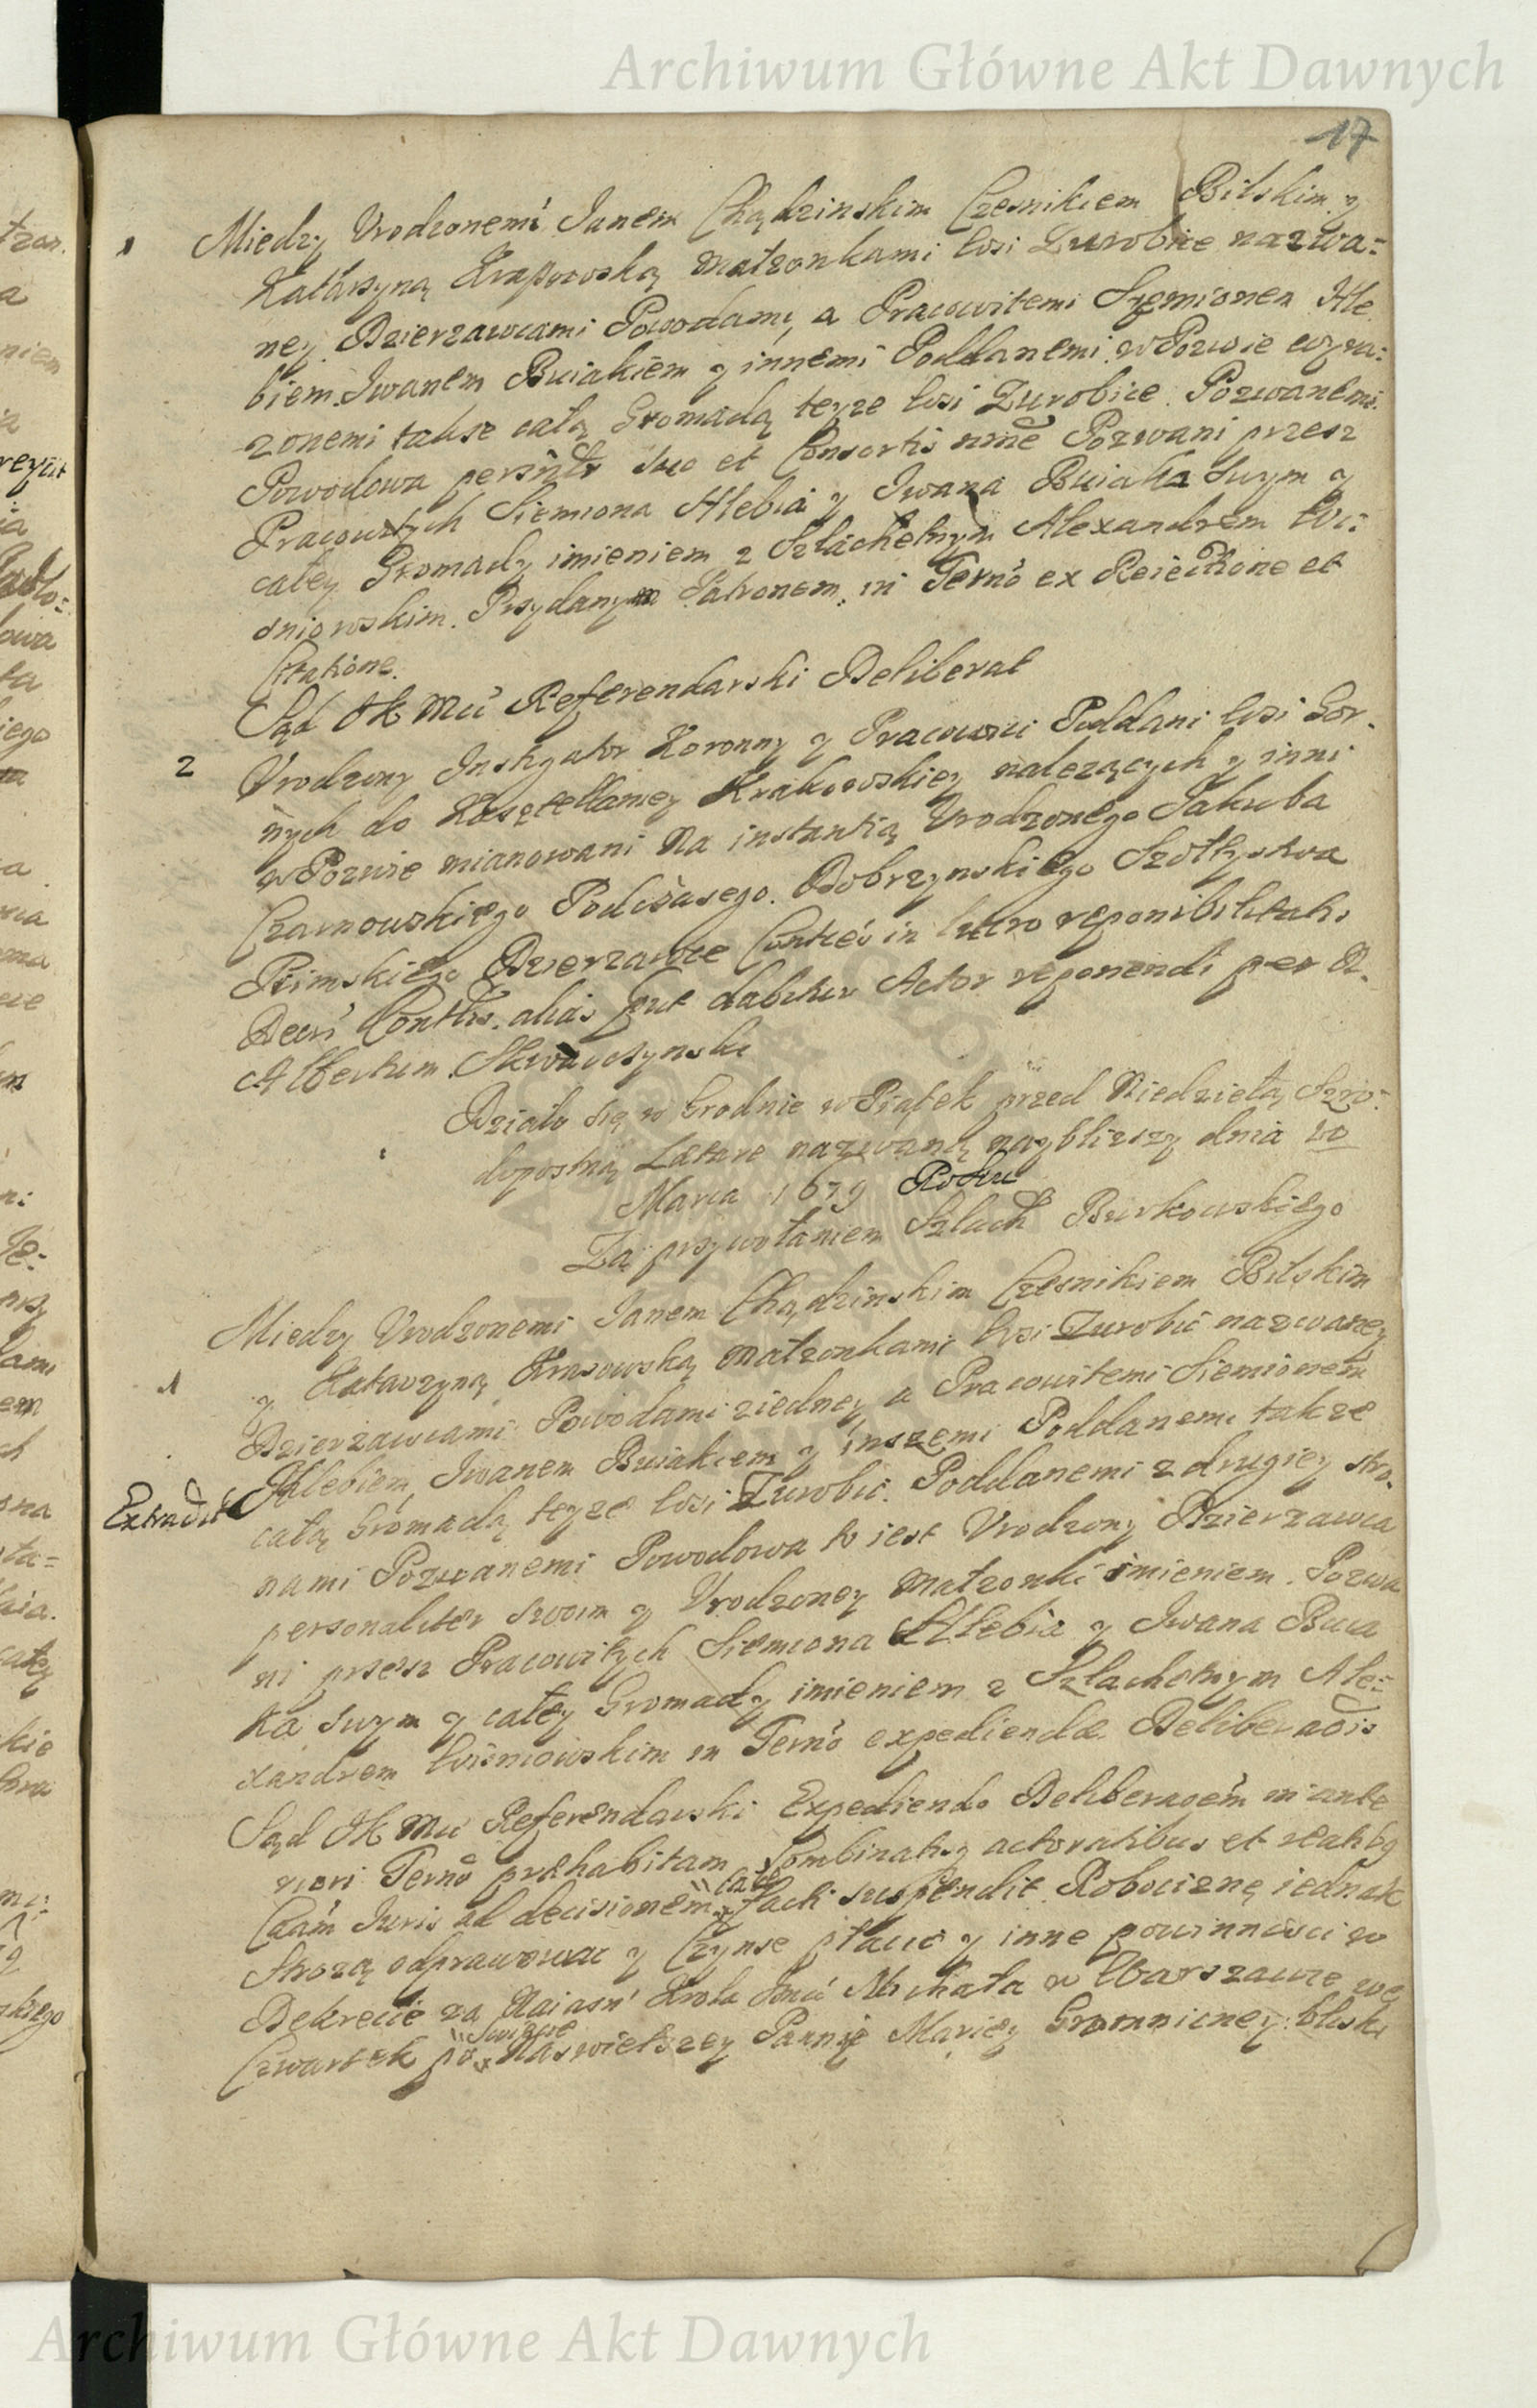 Archiwum Główne Akt Dawnych
17
1 Miedzy Vrodzonemi Janem Chądzinskim Czesnikiem Bilskim y
Katarzyną małzonkami Wsi Zurobice nazwa=
ney Dzierzawcami Powodami, a Pracowitemi Szemionem Hle
biem Iwanem Buiakiem y innemi Poddanemi w Pozwie wyra=
zonemi takse całą Gromadą teyze Wsi Zurobice Pozwanemi
Powodowa persntr suo et Consortis nine Pozwani przesz
Pracowitych Siemiona Hlebia y Iwana Buiaka Swym y
całey Gromady imieniem z Szlachetnym Alexandrem Wi=
sniowskim Przydanym Patronem in Termo ex Reiectione et
Citatione.
Sąd JK Mci Referendarski Deliberat
2 Vrodzony Instygator Koronny y Pracowici Poddani Wsi Gor
nych do Kasztellaniey Krakowskiey nalezących y inni
w Pozwie mianowani Na instantią Vrodzonego Jakuba
Czarnowskiego Podczasego Dobrzynskiego Szołtystwa
Rzimskiego Dzierzawce Contiēs in lucro reponibilitatis
Decri Conttis. alias put dabitur Actor reponendi per N.
Albertum Skwarczynski
Działo się w Grodnie w Piątek przed Niedzielą Szro=
dopostną Lætare nazwaną naybliszszy dnia 10
Marca 1679 Roku
Za przywołaniem Szlach Burkowskiego
1 Miedzy Vrodzonemi Janem Chądzinskim Czesnikiem Bilskim
y Katarzyną Krasowską małzonkami Wsi Zurobic nazwaney
Dzierzawcami Powodami ziedney a Pracowitemi Siemionem
Extradit Hlebiem, Iwanem Buiakiem y inszemi Poddanemi takze
całą Gromadą teyze Wsi Zurobic Poddanemi z drugiey stro=
nami Pozwanemi Powodowa to iest Vrodzony Dzierzawca
personaliter swoim y Vrodzoney małzonki imieniem Pozwa
ni przesz Pracowitych Siemiona Hlebia y Iwana Buia
ka Swym y całey Gromady imieniem z Szlachetnym Ale=
xandrem Wisniowskim in Termo expediendæ Deliberaois
Sąd JK Mci Referendarski Expediendo Deliberaoem in ante
riori Termo præhabitam Combinatis actoratibus et reatibq
Caam Iuris ad decisionem causæ facti suspendit Robociznę iednak
Strozą odprawowac y Czynse płacic y inne powinnosci w
Dekrecie za Naiasn Krola Jmci Michała w Warszawie we
Czwartek po Swięcie Naswietszey Pannie Mariey Gromniczney bliski
Archiwum Główne Akt Dawnych